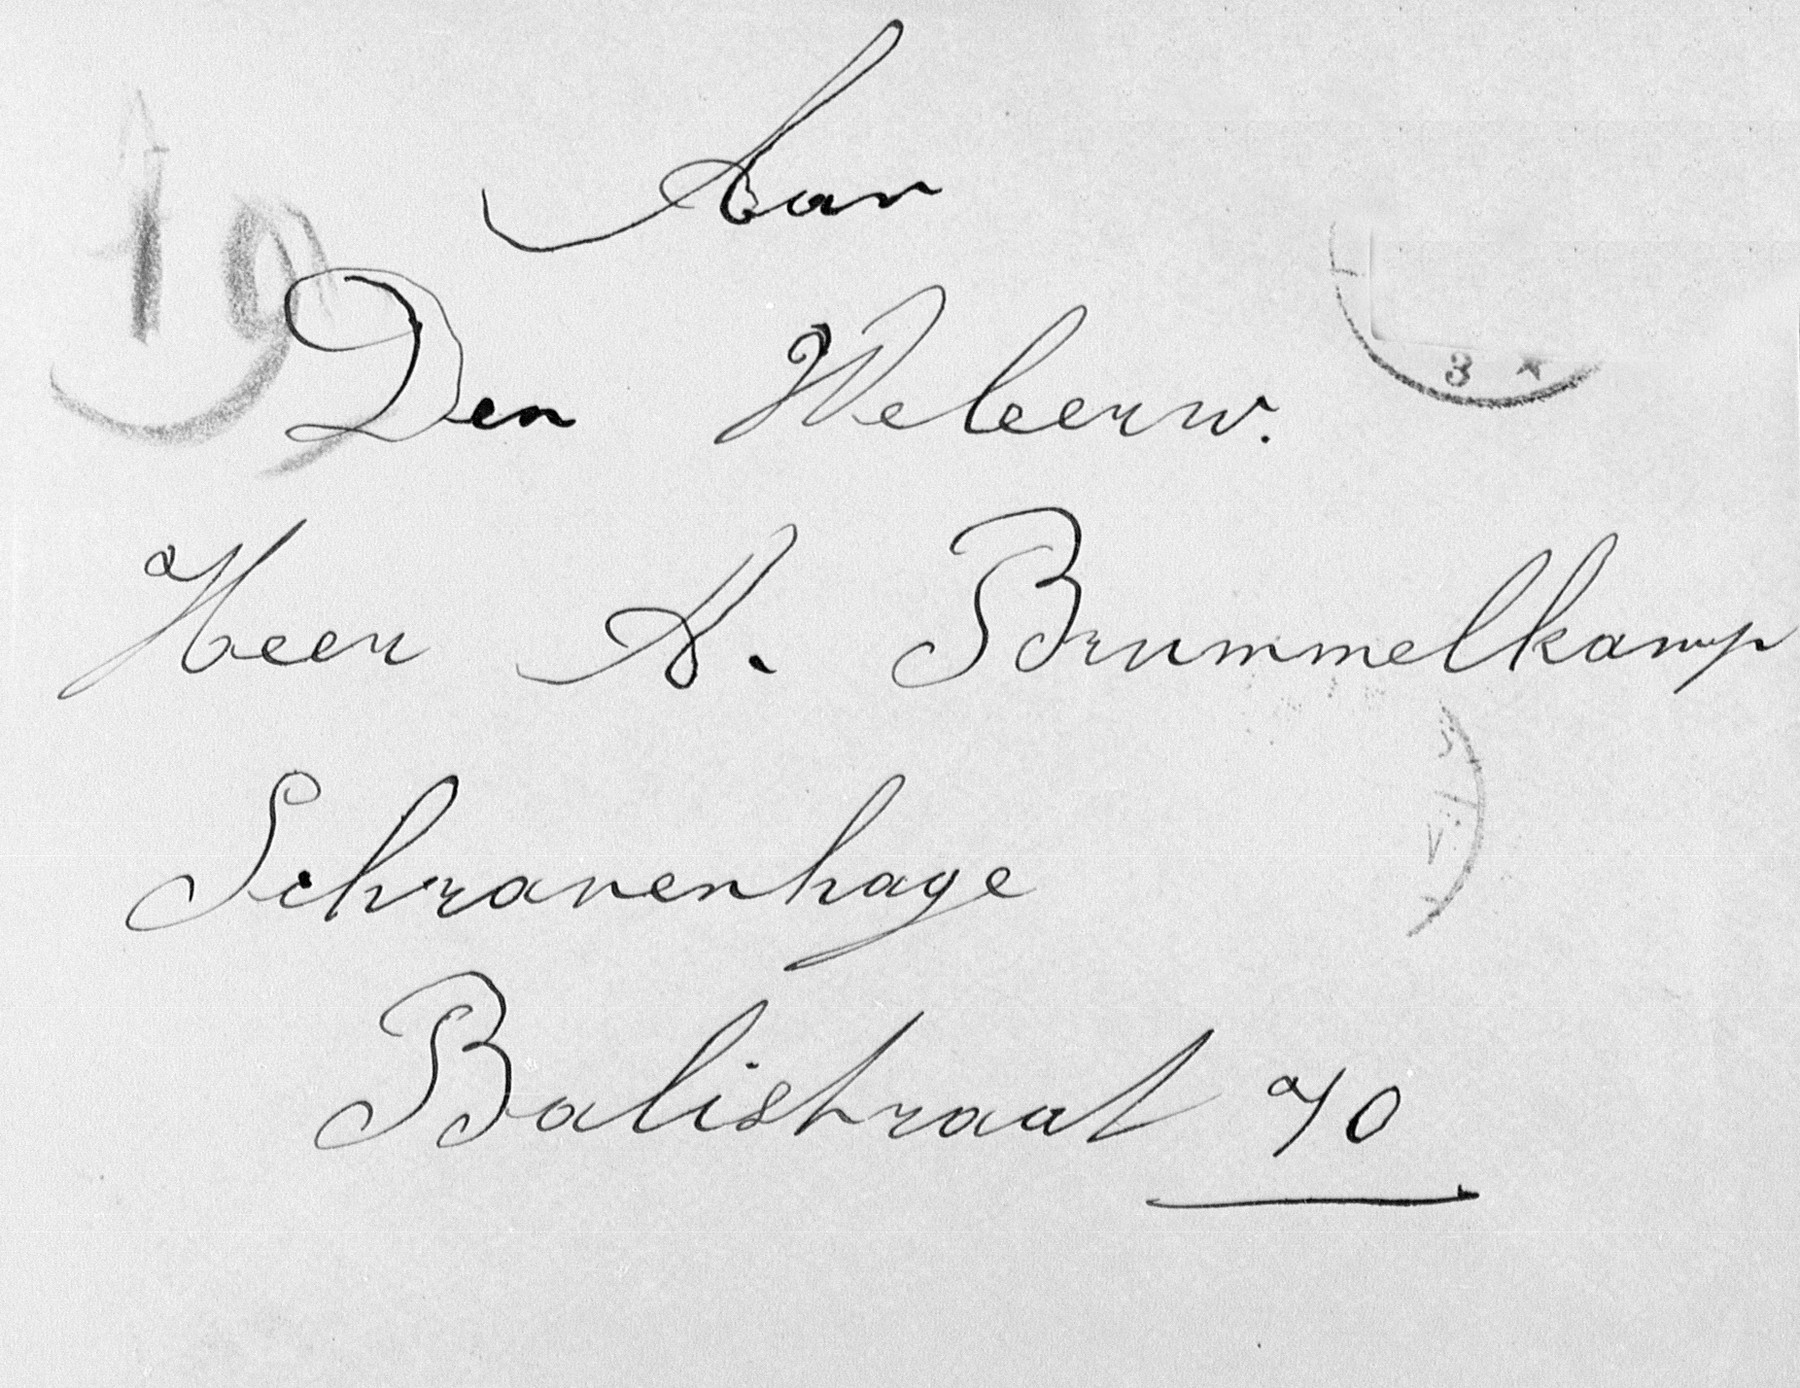 Aan
19
Den Weleerw.
3
Heer A. Brummelkamp
Schravenhage
Balistraat 70